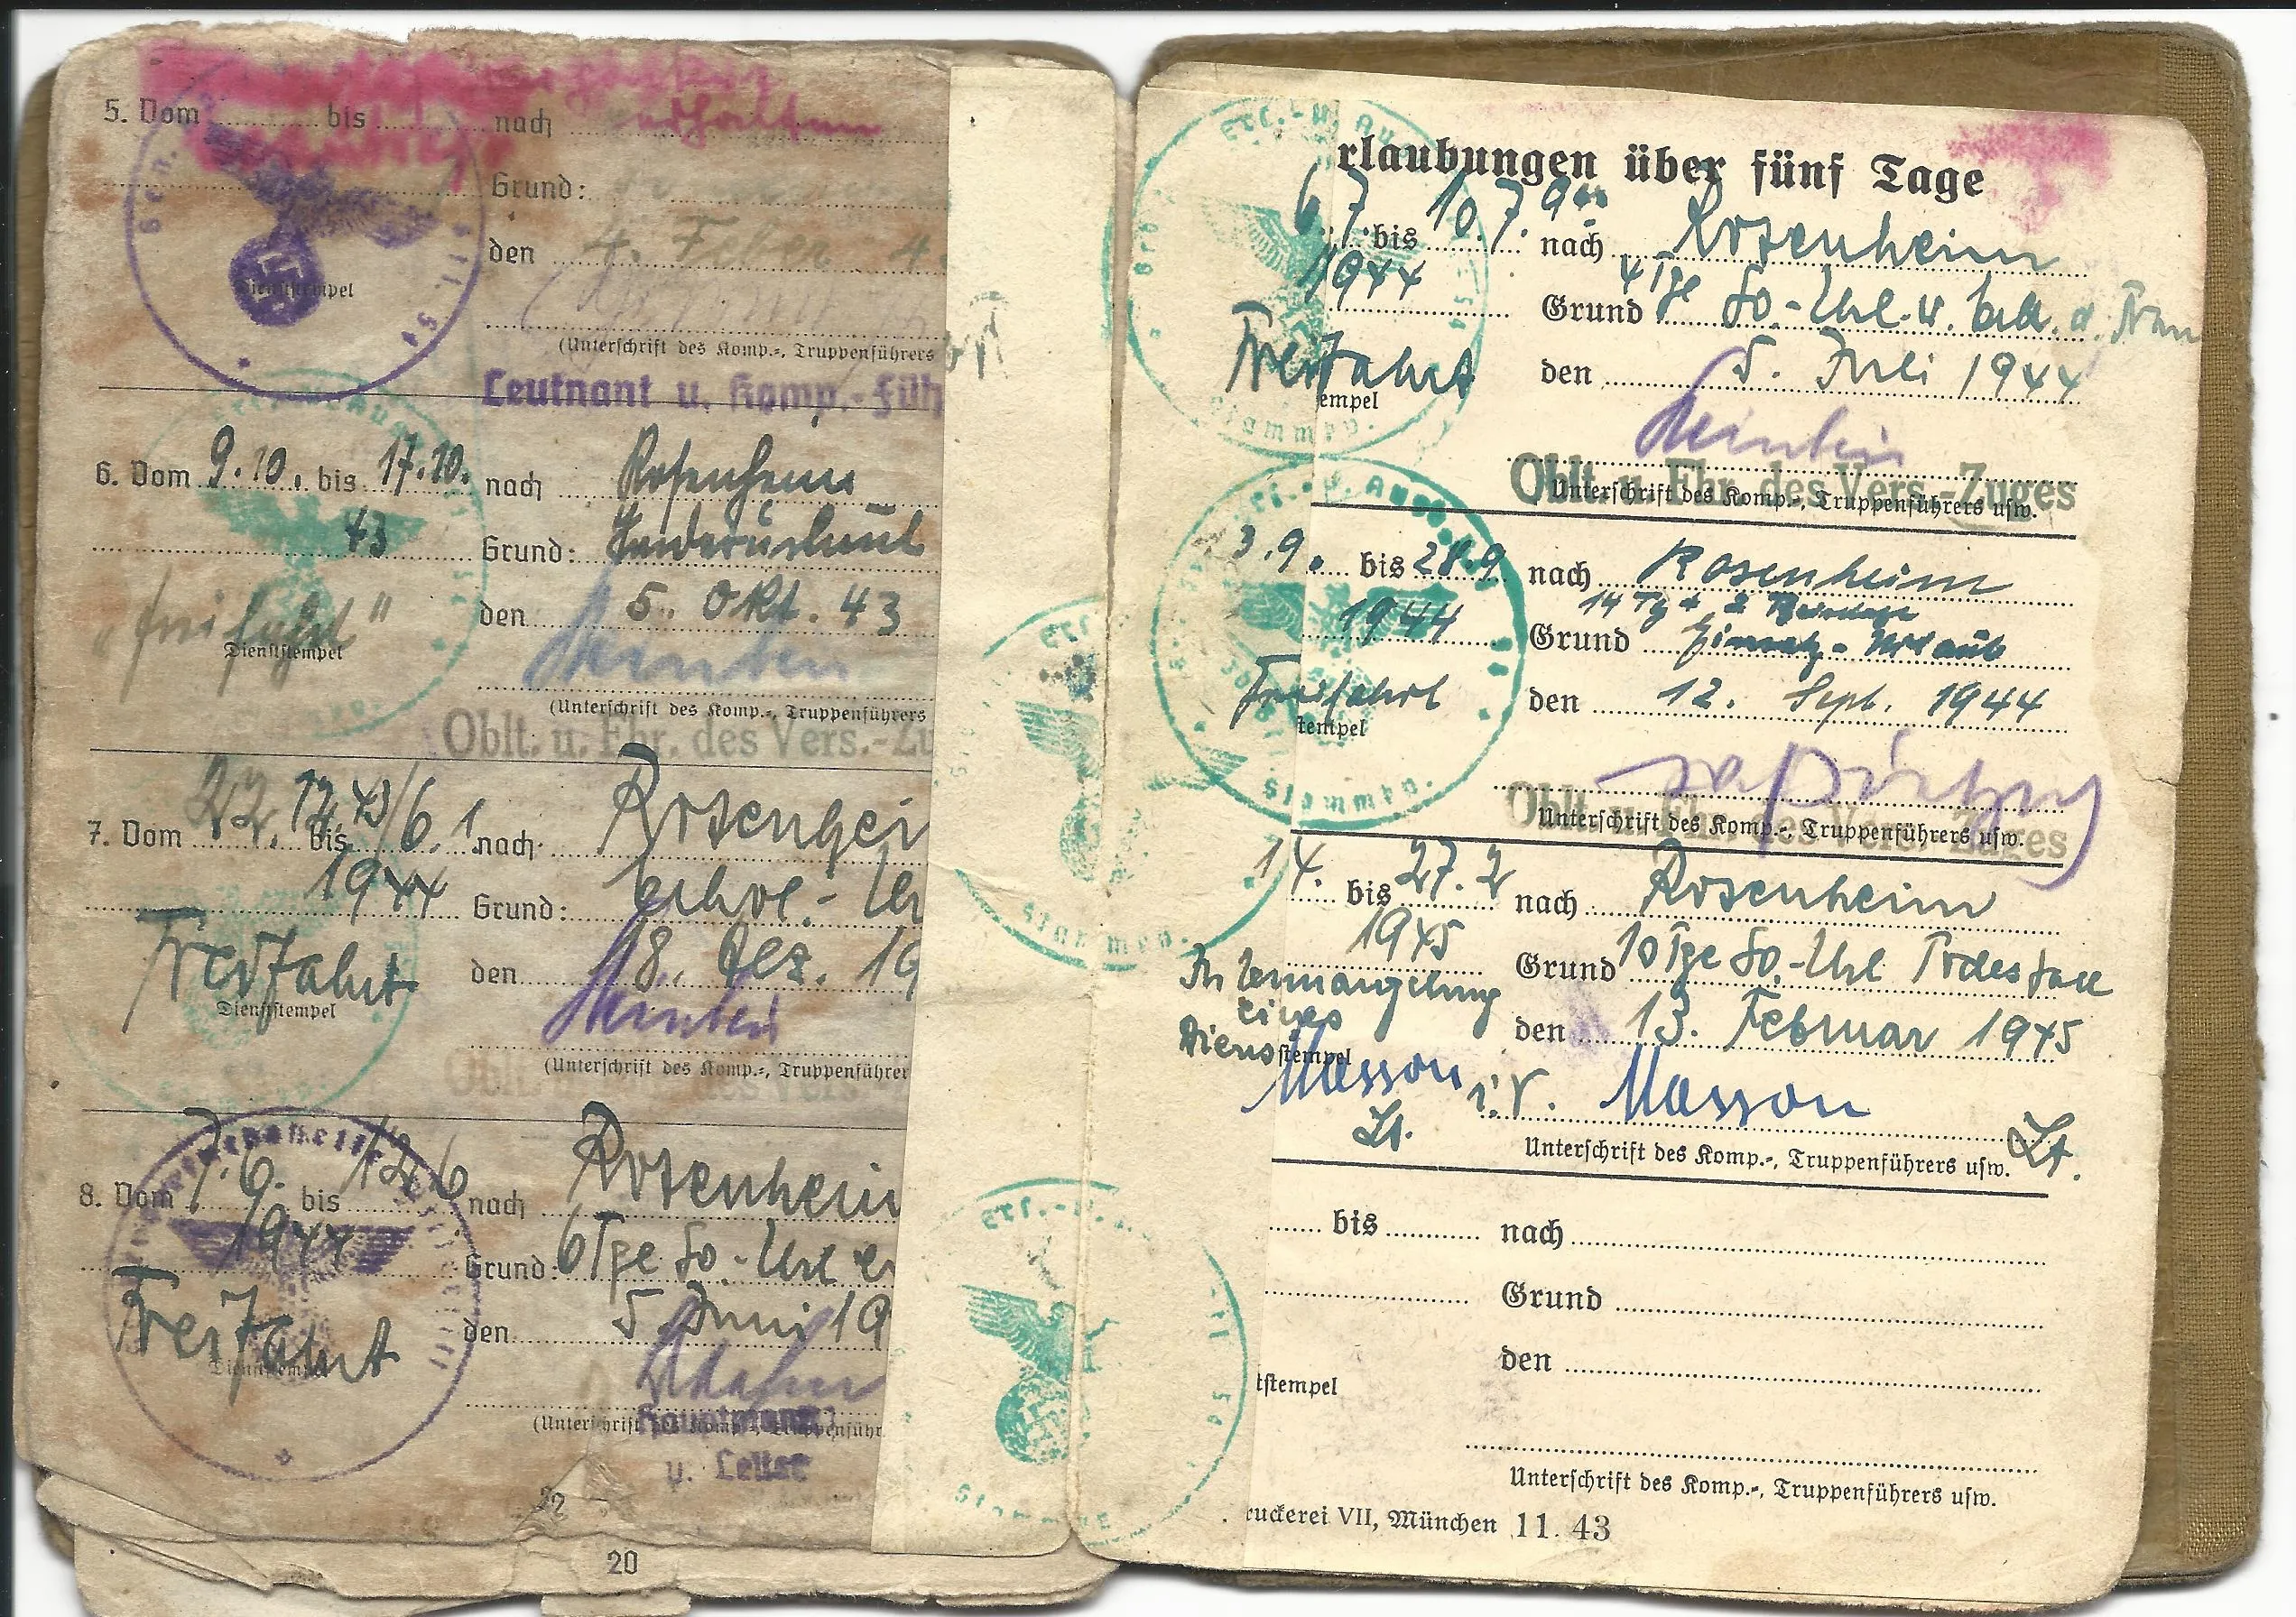 5. Vom ........ bis ........ nach ........ erhalten
Grund:
den 4. Feber 4
Dienststempel
(Unterschrift des Komp.-, Truppenführers
Leutnant u. Komp.-Füh
6. Vom 9.10. bis 17.10. nach Rosenheim
43 Grund: Sonderurlaub
den 5. Okt. 43
"Freifahrt"
Dienststempel
(Unterschrift des Komp.-, Truppenführers
Oblt. u. Fhr. des Vers.-Zu
7. Vom 22.12.43 bis 6.1. nach Rosenhei
1944 Grund: Erhol.-Ur
Freifahrt den 18. Dez. 19
Dienststempel
(Unterschrift des Komp.-, Truppenführer
Oblt. des Vers
8. Vom 7.6. bis nach Rosenheim
1944 Grund: 6 Tge So.-Url
Freifahrt den 5. Juni 19
Dienststempel
(Unterschrift des Komp.-, Truppenführ
Hauptmann
u. Leiter
22
20
rlaubungen über fünf Tage
6.7. bis 10.7. nach Rosenheim
1944 Grund 4 Tge So.-Url. d. Frau
Freifahrt den 5. Juli 1944
empel
Oblt. u. Fhr. des Vers.-Zuges
Unterschrift des Komp.-, Truppenführers usw.
3.9. bis 28.9 nach Rosenheim
14 Tg + 2 Reisetage
1944 Grund Einsatz-Urlaub
Freifahrt den 12. Sept. 1944
tempel
Oblt. u. Fhr. des Vers.-Zuges
Unterschrift des Komp.-, Truppenführers usw.
14. bis 27.2 nach Rosenheim
1945 Grund 10 Tge So.-Url Todesfall
In Ermangelung
eines den 13. Februar 1945
Dienststempel
Masson i.V. Masson
Lt. Lt.
Unterschrift des Komp.-, Truppenführers usw.
bis ........ nach ........
Grund ........
den ........
tstempel
Unterschrift des Komp.-, Truppenführers usw.
ruckerei VII, München 11. 43